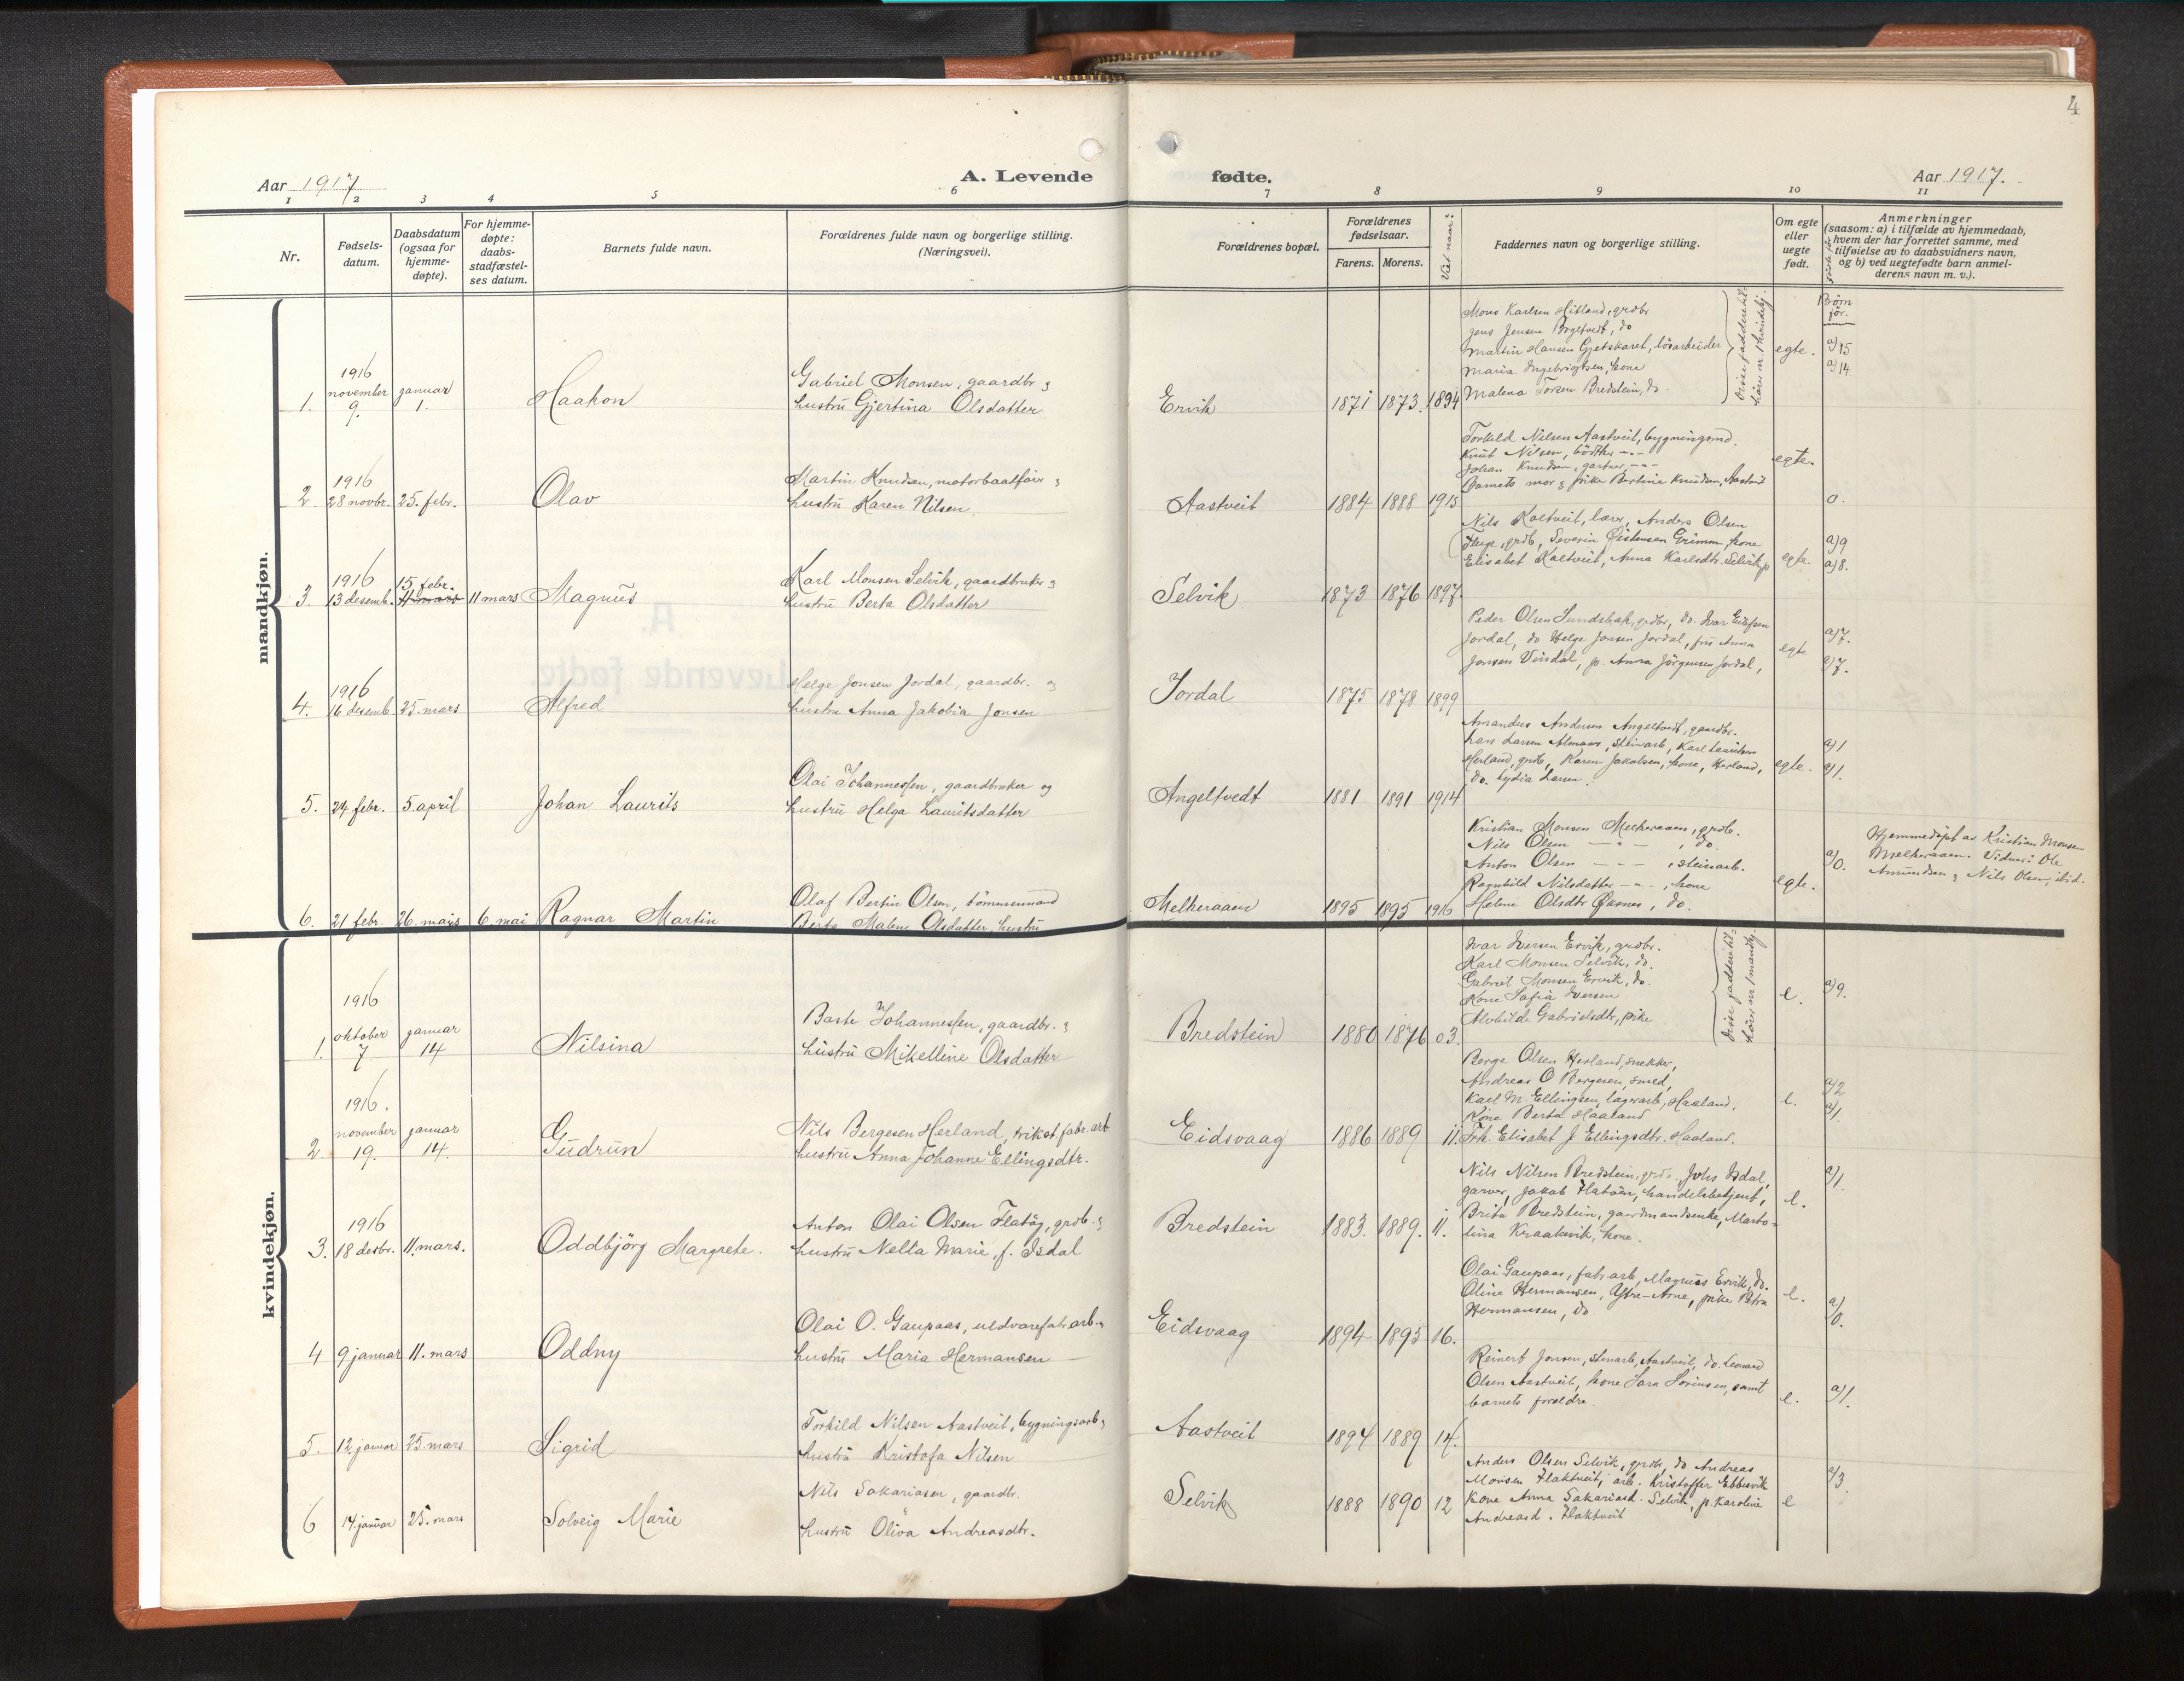 4
Aar 1917
A. Levende fødte.
Aar 1917.
1 2 3 4 5 6 7 8 9 10 11
Nr.
Fødsels-
datum.
Daabsdatum
(ogsaa for
hjemme-
døpte).
For hjemme-
døpte:
daabs-
stadfæstel-
ses datum.
Barnets fulde navn.
Forældrenes fulde navn og borgerlige stilling.
(Næringsvei).
Forældrenes bopæl.
Forældrenes
fødselsaar.
Farens. Morens.
Viet naar?
Faddernes navn og borgerlige stilling.
Om egte
eller
uegte
født.
Anmerkninger
(saasom: a) i tilfælde av hjemmedaab,
hvem der har forrettet samme, med
tilføielse av to daabsvidners navn,
og b) ved uegtefødte barn anmel-
derens navn m. v.).
mandkjøn.
1.
1916
november
9.
januar
1.
Haakon
Gabriel Monsen, gaardbr. &
hustru Gjertina Olsdatter
Ervik
1871 1873. 1894
Mons Karlsen Hitland, grdbr
Jens Jensen
Martin Hansen Gjetskaret, løsarbeider
Maria Ingebrigtsen, kone
Malena Torsen Bredstein, do.
egte.
Børn
før.
a) 15
a) 14
2
1916
28 novbr.
25. febr.
Olav
Martin Knudsen, motorbaatfører &
hustru Karen Nilsen
Aastveit
1884 1888 1915
Torkild Nilsen Aastveit, bygningsmd.
Knut Nilsen, bødker -"-
Johan Knudsen, gartner -"-
Barnets mor & pike Bertine Knudsen, Aastveit
egte.
0.
3.
1916
13 desemb.
15. febr.
11 mars
11 mars
Magnus
Karl Monsen Selvik, gaardbruker &
hustru Berta Olsdatter
Selvik
1873 1876 1897.
Nils Kaltveit, lærer, Anders Olsen
grdb, Severin Øistensen Grimm, kone
Elisabet Kaltveit, Anna Karlsdtr. Selvik p
egte.
a) 9
a) 8.
4.
1916
16 desemb
25. mars
Alfred
Helge Jonsen Jordal, gaardbr. og
hustru Anna Jakobia Jonsen
Jordal
1875 1878 1899
Peder Olsen Sundsbak, grdbr, do. Ivar Ellefsen
Jordal, do Helge Jonsen Jordal, fru Anna
Jonsen Vindal, p. Anna Jørgensen Jordal,
egte
a) 7.
a) 7.
5.
24 febr.
5. april
Johan Laurits
Olai Johannessen, gaardbruker og
hustru Helga Lauritsdatter
Angeltvedt
1881 1891 1914
Amandus Andersen Angeltvedt, gaardbr.
Lars Larsen Almaas, steinarb, Karl Lauritsen
Herland, grdb, Karen Jakobsen, kone, Herland,
do. Lydia Larsen.
egte.
a) 1
a) 1.
6.
21 febr.
26. mars
6 mai
Ragnar Martin
Olaf Bertin Olsen, tømmermand
Berta Malene Olsdatter, hustru
Melkeraaen
1895 1895 1916
Kristian Monsen Melkeraaen, grdb.
Nils Olsen -"- , do.
Anton Olsen -"- , steinarb.
Ragnhild Nilsdatter -"- , kone
Helene Olsdtr Øksnes, do.
egte.
a) 0.
Hjemmedøpt av Kristian Monsen
Melkeraaen. Vidner: Ole
Amundsen & Nils Olsen, ibid.
kvindekjøn.
1.
1916
oktober
7
januar
14
Nilsina
Baste Johannessen, gaardbr. &
hustru Mikelline Olsdatter
Bredstein
1880 1876 03.
Ivar Iversen Ervik, grdbr.
Karl Monsen Selvik, do.
Gabriel Monsen Ervik, do.
Kone Sofia Iversen
Alvhilde Gabrielsdtr, pike
e.
a) 9.
2
1916.
november
19.
januar
14.
Gudrun
Nils Bergesen Herland, trikot.fabr.arb
hustru Anna Johanne Ellingsdtr.
Eidsvaag
1886 1889 11.
Berge Olsen Herland, snekker,
Andreas O Bergesen, smed,
Karl M. Ellingsen, lagerarb, Haaland,
Kone Berta Haaland
Frk. Elisabet J Ellingsdtr. Haaland.
e.
a) 2
a) 1.
3.
1916
18 desbr.
11. mars.
Oddbjörg Margrete.
Anton Olai Olsen Flatøy, grdb. &
hustru Nelta Marie, f. Isdal
Bredstein
1883. 1889. 11.
Nils Nilsen Bredstein, grdb. Johs Isdal,
garver, Jakob Flatøen, handelsbetjent,
Brita Bredstein, gaardmandsenke, Marto-
lina Kraakevik, kone.
e.
a) 1.
4
9 januar
11. mars
Oddny
Olai O. Gaupaas, uldvarefabr.arb. &
hustru Maria Hermansen
Eidsvaag
1894 1895 16.
Olai Gaupaas, fabr.arb, Magnus Ervik, do.
Oline Hermansen, Ytre-Arne, pike Petra
Hermansen, do
e.
a) 0.
5.
12. januar
25. mars
Sigrid
Torkild Nilsen Aastveit, bygningsarb &
hustru Kristofa Nilsen
Aastveit
1894 1889 14.
Reinert Jonsen, stenarb, Aastveit, do. Leonard
Olsen Aastveit, kone Sara Sørensen, samt
barnets forældre.
e.
a) 1.
6
14. januar
25. mars
Solveig Marie
Nils Sakariasen, gaardbr.
hustru Oliva Andreasdtr.
Selvik
1888 1890 12
Anders Olsen Selvik, grdb, do Andreas
Monsen Flaktveit, arb. Kristoffer Ebbesvik
Kone Anna Sakariasd. Selvik, p. Karoline
Andreasd. Flaktveit
e
a) 3.